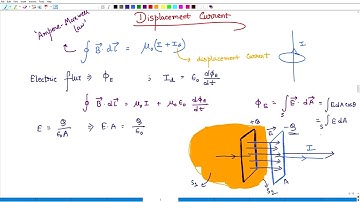 Displacement Current
"Ampere Maxwell Law"
∮ B⃗·dl⃗ = μ₀(I + I_d)
displacement current
I
Electric flux = Φ_E ; I_d = ε₀ dΦ_E/dt
∮ B⃗·dl⃗ = μ₀ I + μ₀ ε₀ dΦ_E/dt
Φ_E = ∫_S E⃗·dA⃗ = ∫ E dA cosθ
= ∫_S E dA
E = Q/ε₀A ⇒ E·A = Q/ε₀
+Q
-Q
E
I
S₁
S₂
A